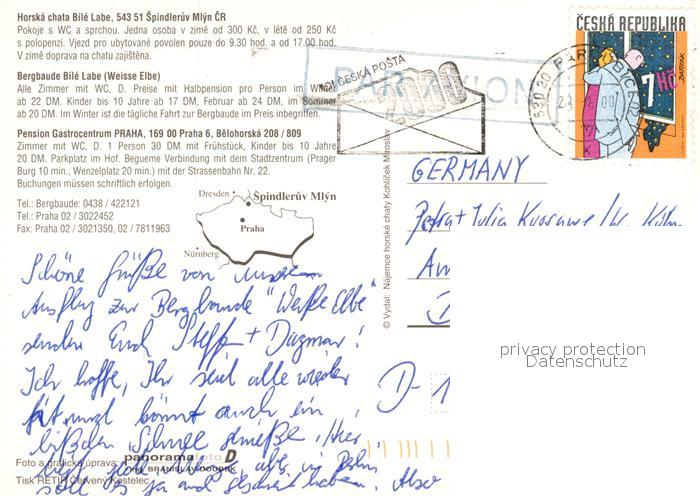 Horská chata Bílé Labe, 543 51 Špindlerův Mlýn ČR
Pokoje s WC a sprchou. Jedna osoba v zimě od 300 Kč, v létě od 250 Kč
s polopenzí. Vjezd pro ubytované povolen pouze do 9.30 hod. a od 17.00 hod.
V zimě doprava na chatu zajištěna.
Bergbaude Bílé Labe (Weisse Elbe)
Alle Zimmer mit WC, D. Preise mit Halbpension pro Person im Winter
ab 22 DM. Kinder bis 10 Jahre ab 17 DM, Februar ab 24 DM, im Sommer
ab 20 DM. Im Winter ist die tägliche Fahrt zur Bergbaude im Preis inbegriffen.
Pension Gastrocentrum PRAHA, 169 00 Praha 6, Bělohorská 208 / 809
Zimmer mit WC, D. 1 Person 30 DM mit Frühstück, Kinder bis 10 Jahre
20 DM. Parkplatz im Hof. Begueme Verbindung mit dem Stadtzentrum (Prager
Burg 10 min., Wenzelplatz 20 min.) mit der Strassenbahn Nr. 22.
Buchungen müssen schriftlich erfolgen.
Tel.: Bergbaude: 0438 / 422121
Tel.: Praha 02 / 3022452
Fax: Praha 02 / 3021350, 02 / 7811963
Dresden
Špindlerův Mlýn
Praha
Nürnberg
© Vydal: Nájemce horské chaty Kohlíček Miroslav
ČESKÁ POŠTA
PAR AVION
2000
530 20 PARDUBICE
ČESKÁ REPUBLIKA
7 Kč
BARTÁK
GERMANY
Petra + Julia
Am
D-1
Schöne Grüße von unserem
Ausflug zur Bergbaude "Weiße Elbe"
senden Euch Steff + Dagmar!
Ich hoffe, Ihr seid alle wieder
fit und könnt auch ein
bißchen Schnee genießen. Hier
soll es ja auch geschneit haben. Also
Foto a grafická úprava:
panoramafoto D
ING. BRANISLAV
Tisk RETIP Červený Kostelec
privacy protection
Datenschutz